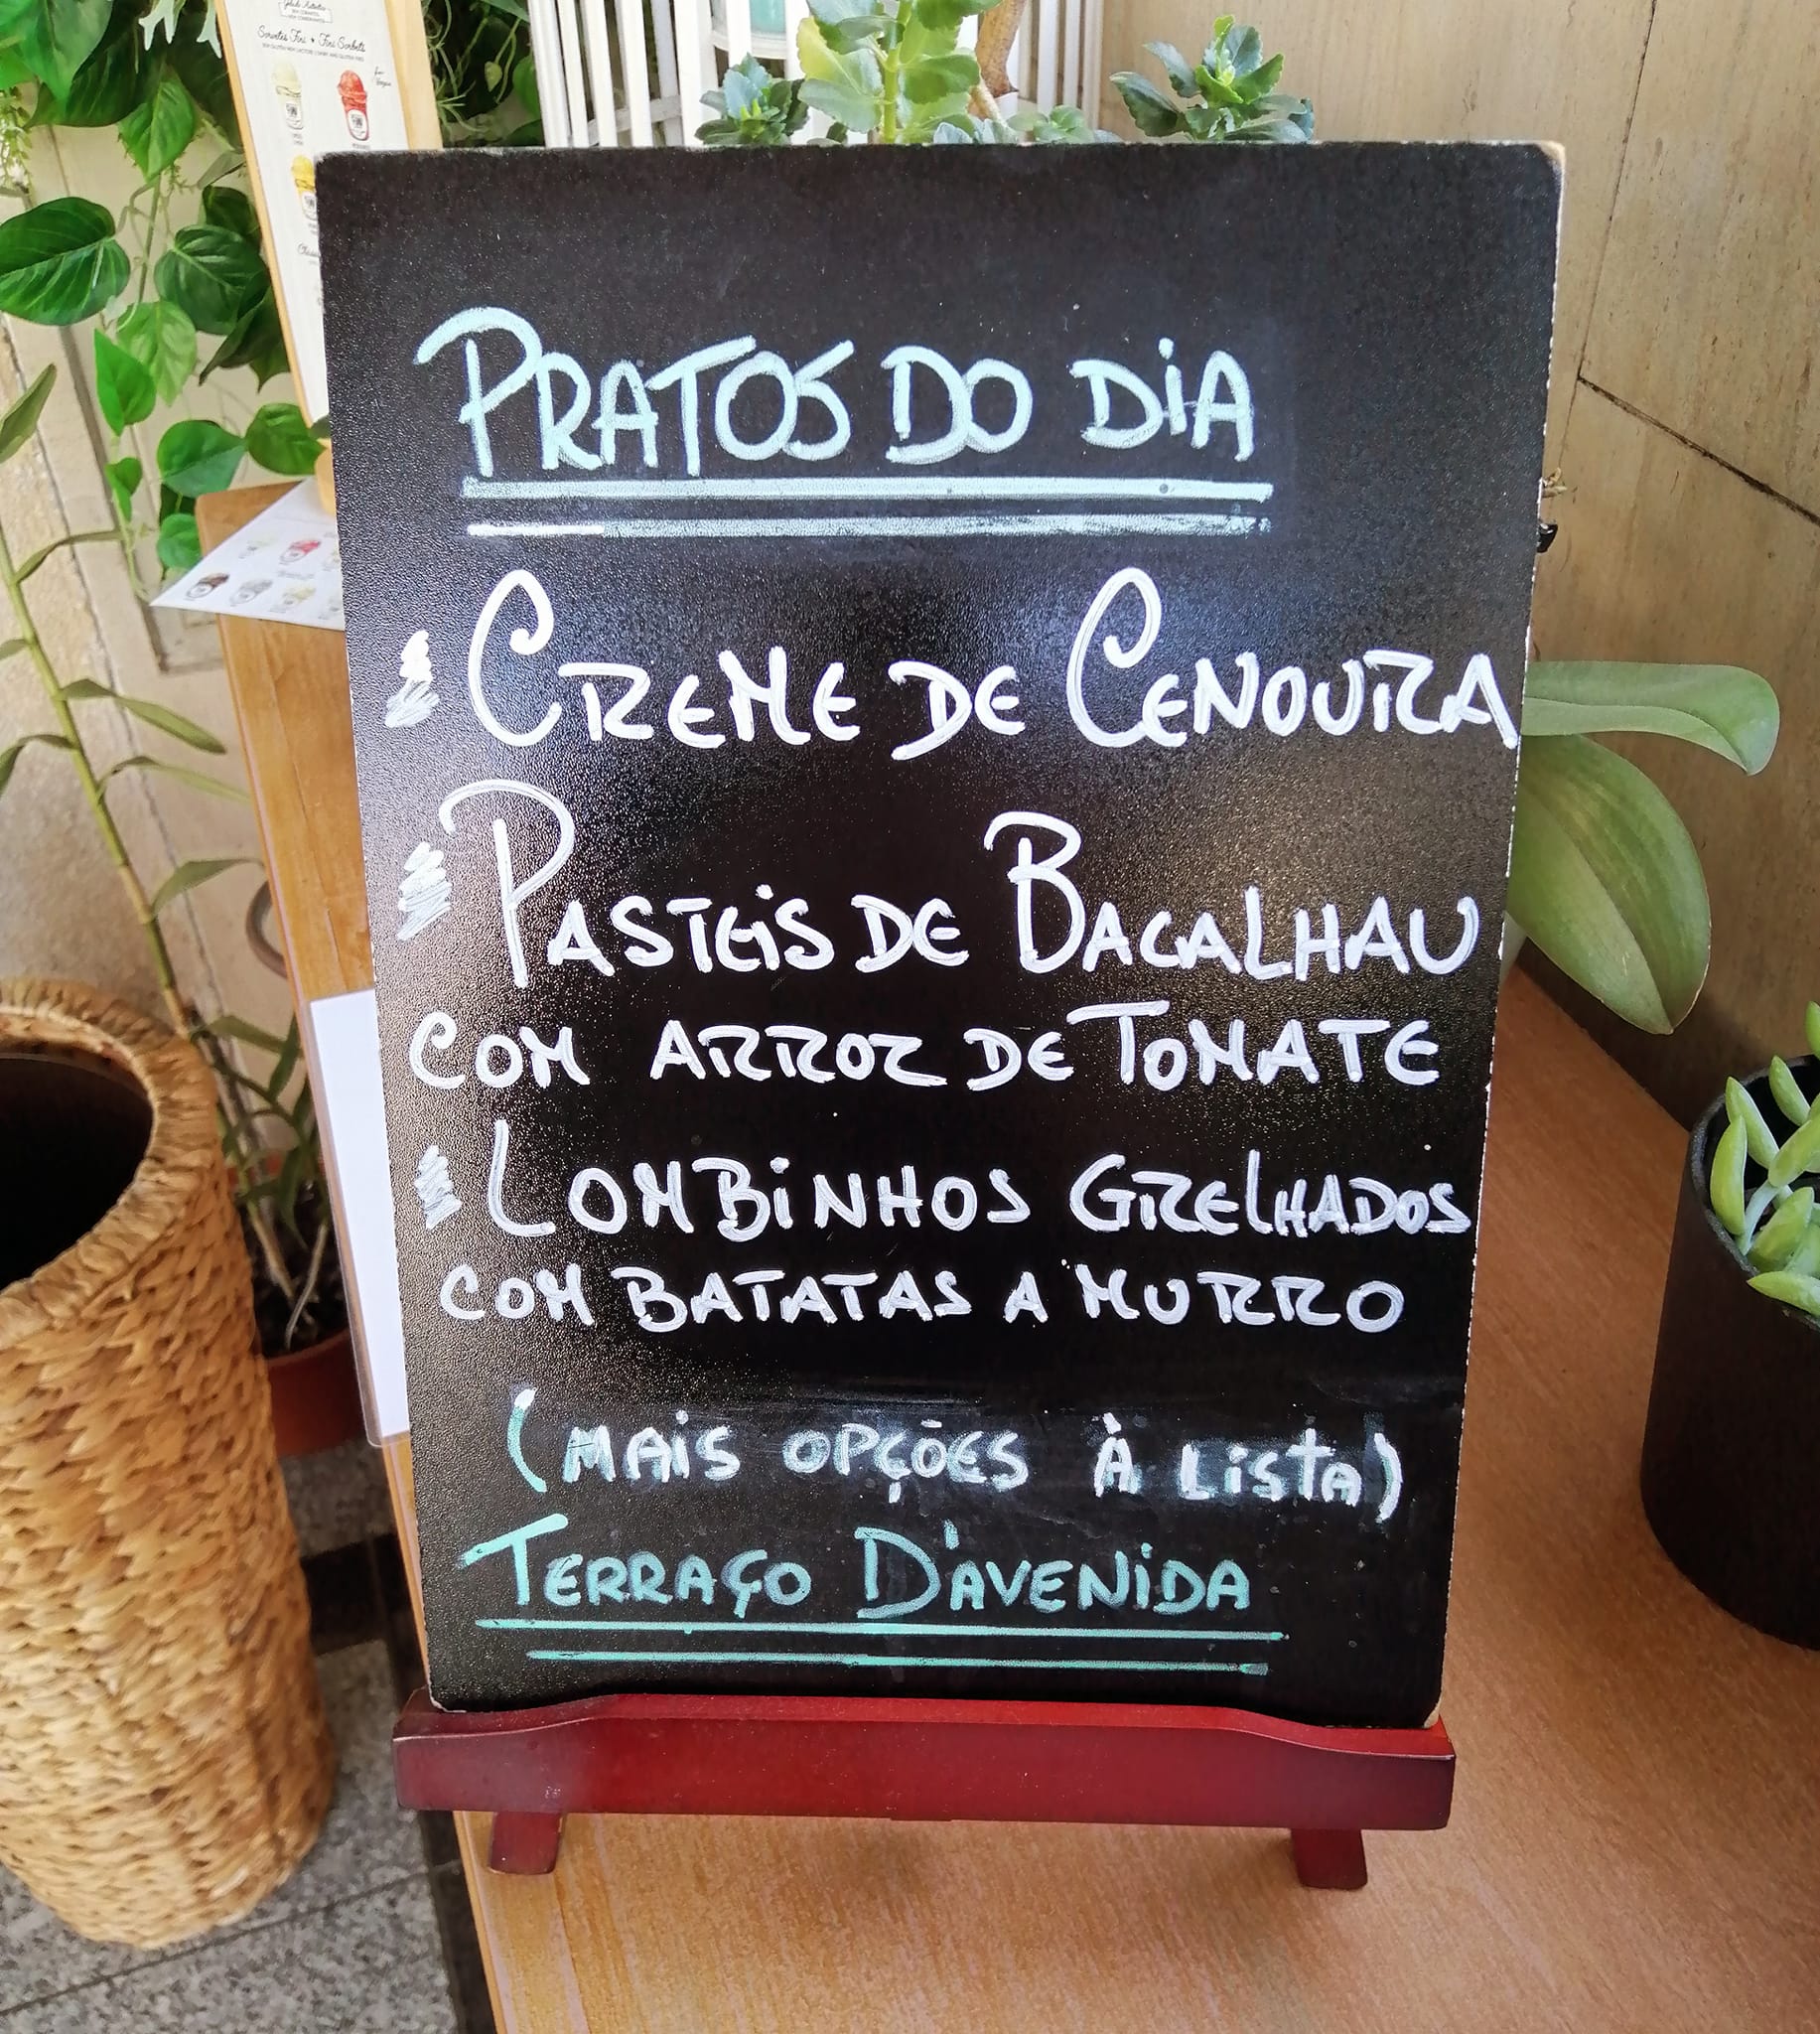 Sorvetes Fini • Fini Sorbets
PRATOS DO DIA
CREME DE CENOURA
PASTEIS DE BACALHAU
COM ARROZ DE TOMATE
LOMBINHOS GRELHADOS
COM BATATAS A MURRO
(MAIS OPÇÕES À LISTA)
TERRAÇO D'AVENIDA